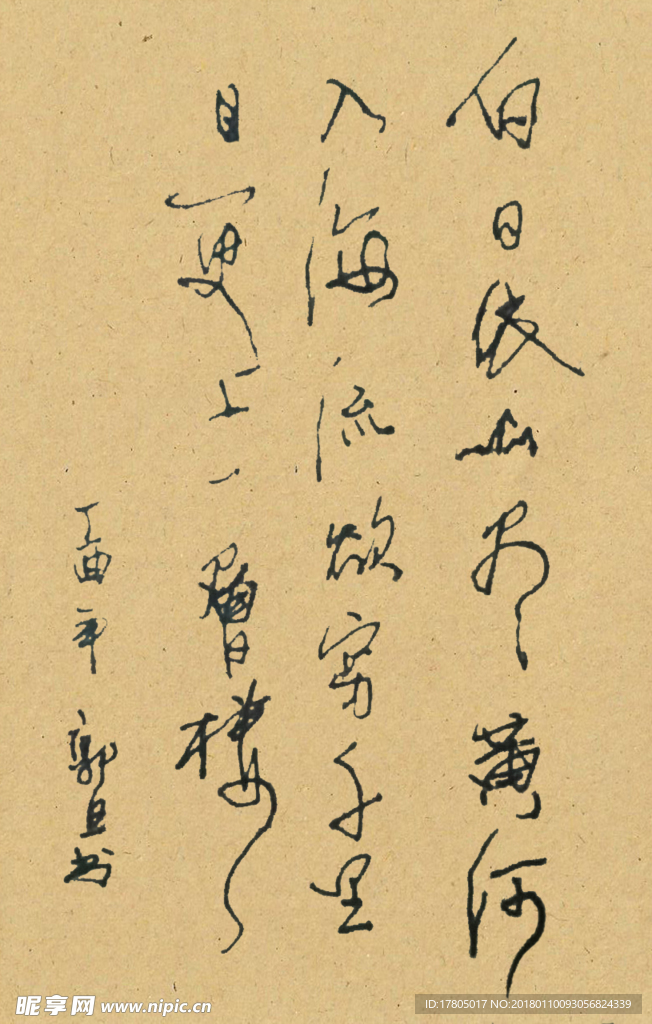 白日依山尽黄河
入海流欲穷千里
目更上一層楼
丁酉年 郭旦书
昵享网 www.nipic.cn
ID:17805017 NO:20180110093056824339